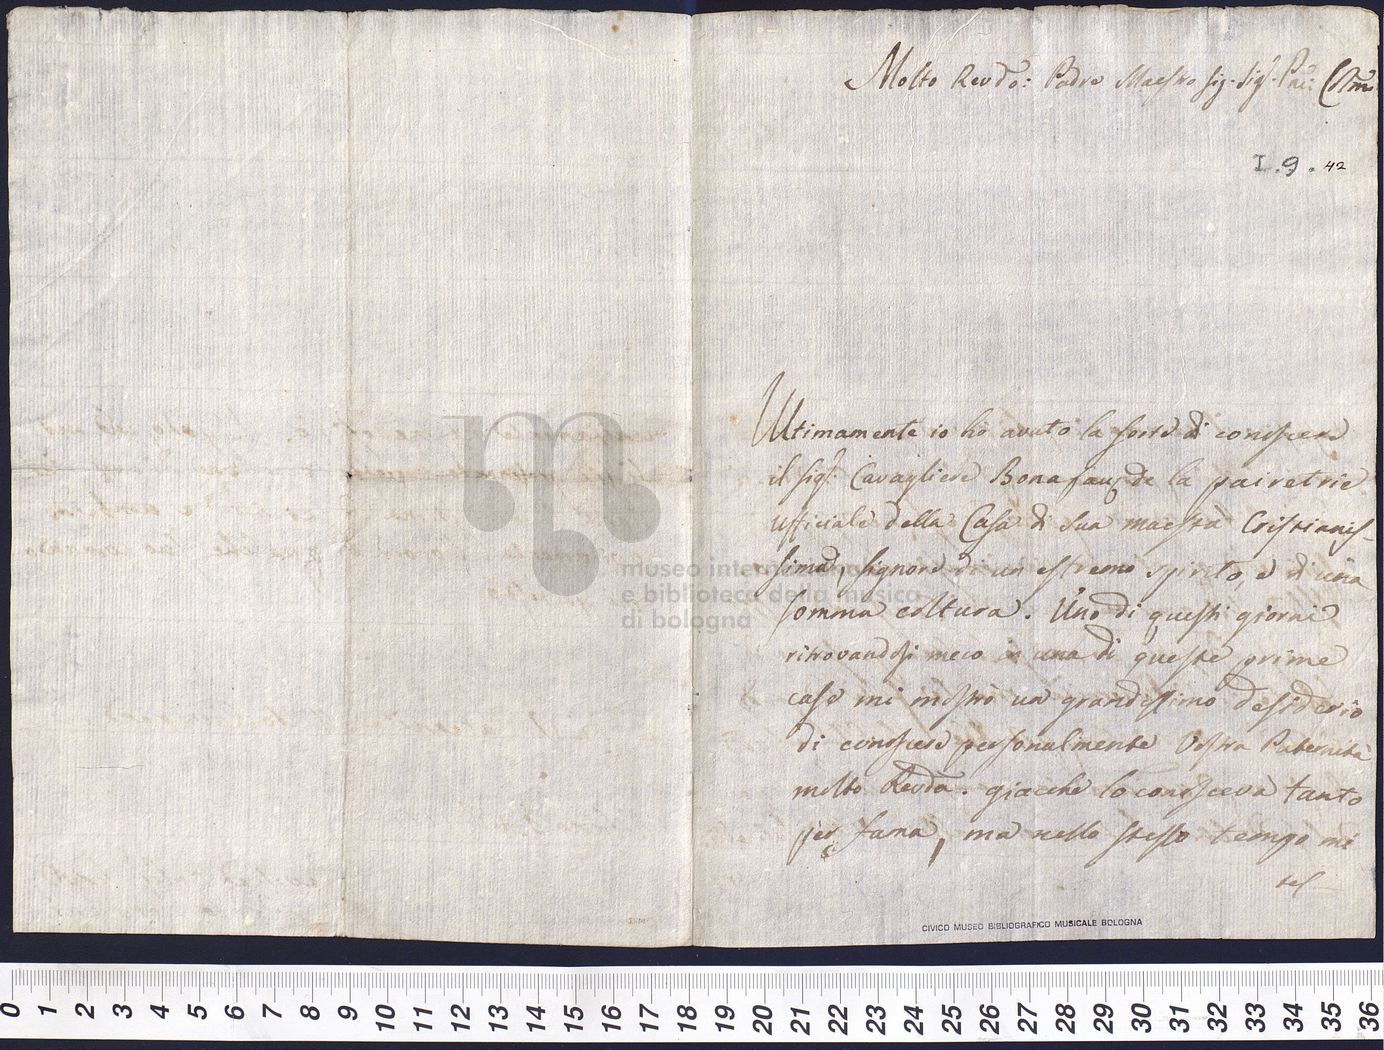 Molto Revdo: Padre Maestro Sig. Sigr. Pne: Colmo
I. 9. 42
Ultimamente io hò avuto la sorte di conoscere
il Sigr. Cavagliere Bonafaus de la pairetrie
ufficiale della Casa di Sua maestà Cristianis-
sima, Signore di un estremo spirito, e di una
somma coltura. Uno di questi giorni
ritrovandosi meco in una di queste prime
case mi mostrò un grandissimo desiderio
di conoscere personalmente Vostra Paternità
molto Revda. giacche lo conosceva tanto
per fama, ma nello stesso tempo mi
museo internazionale
e biblioteca della musica
di bologna
CIVICO MUSEO BIBLIOGRAFICO MUSICALE BOLOGNA
0 1 2 3 4 5 6 7 8 9 10 11 12 13 14 15 16 17 18 19 20 21 22 23 24 25 26 27 28 29 30 31 32 33 34 35 36